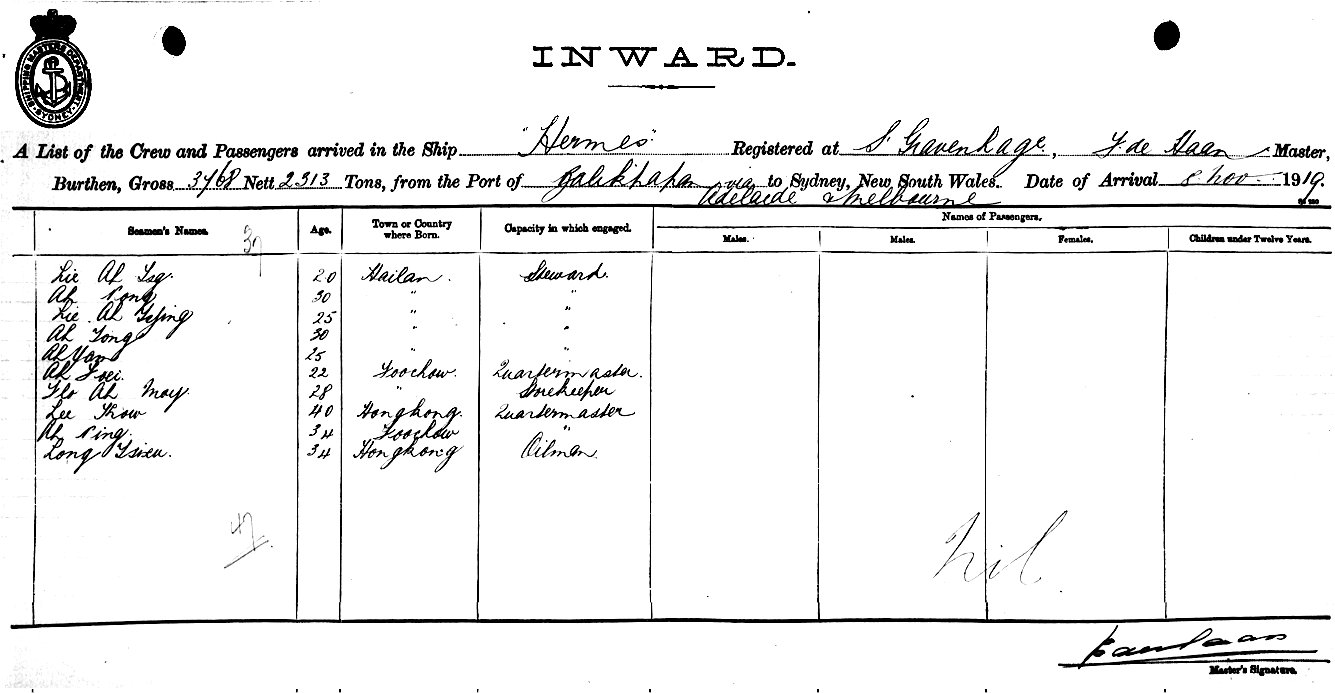 SHIPPING MASTERS DEPARTMENT SYDNEY
INWARD.
A List of the Crew and Passengers arrived in the Ship "Hermes" Registered at S' Gravenhage, F. de Haan Master,
Burthen, Gross 3768 Nett 2313 Tons, from the Port of Balikpapan via to Sydney, New South Wales. Date of Arrival 8 Nov 1919.
Adelaide & Melbourne
Names of Passengers.
Seamen's Names. Age. Town or Country where Born. Capacity in which engaged. Males. Males. Females. Children under Twelve Years.
37
Lie Ah 20 Hailan. Steward.
Ah 30 " "
Lie Ah 25 " "
Ah Tong 30 " "
Ah Yam 25 " "
Ah 22 Foochow. Quartermaster.
Ah Moy. 28 " Storekeeper
Lee 40 Hongkong. Quartermaster
Ah 34 Foochow "
Long 34 Hongkong Oilman.
47
Nil
Master's Signature.